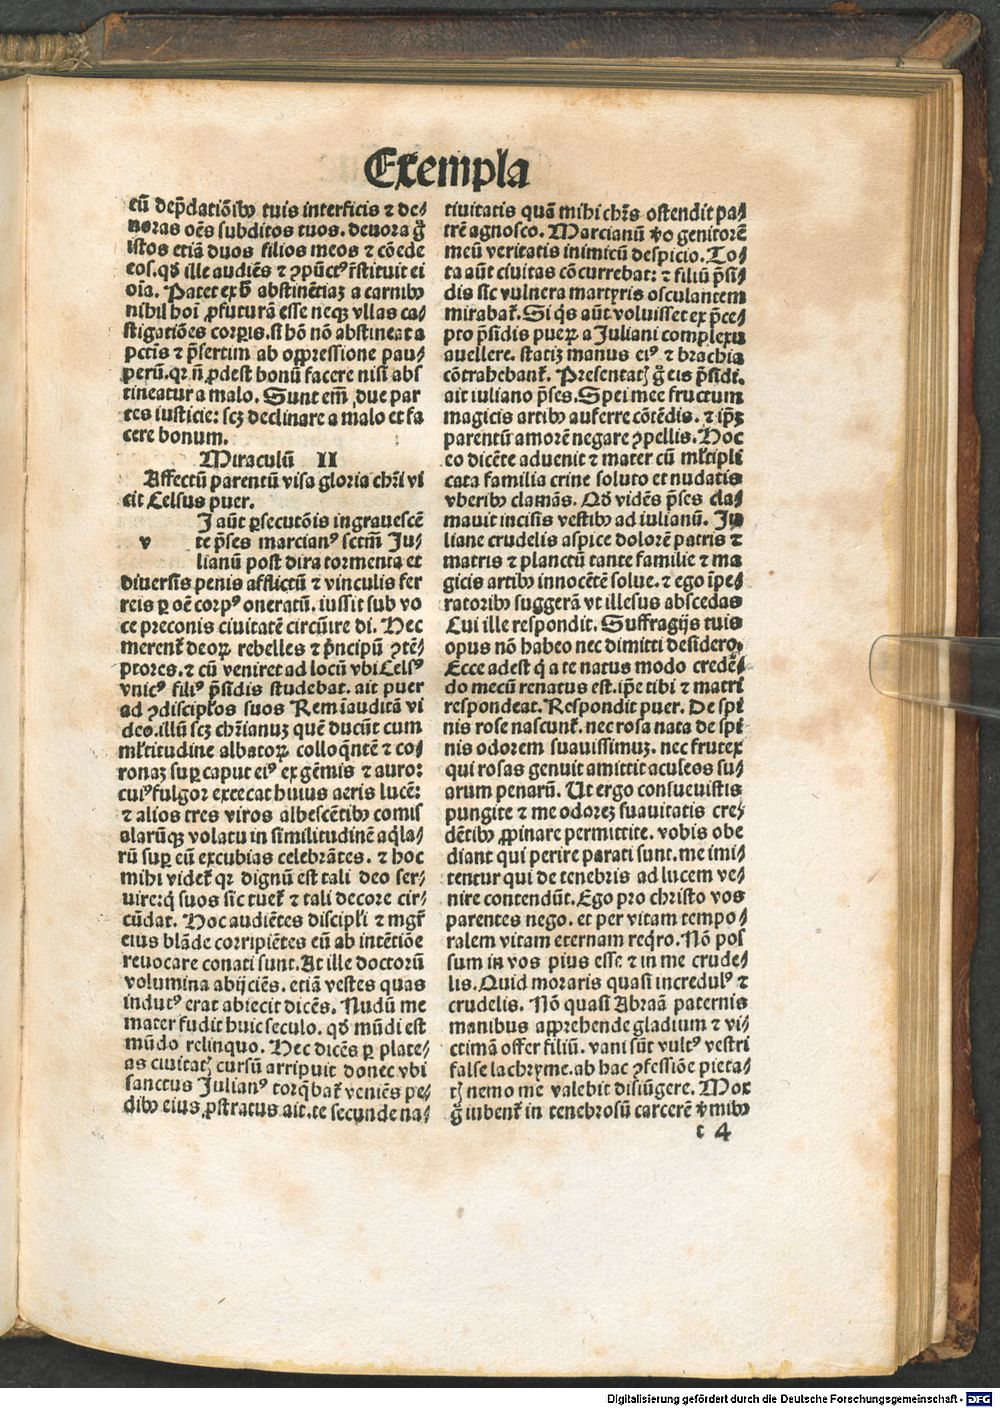 Exempla
cū dep̄datiōibꝰ tuis interficis ⁊ de⸗
uoras oēs subditos tuos. deuora ḡ
istos etiā duos filios meos ⁊ cōede
eos. qđ ille audiēs ⁊ ꝯpūctꝰ r̄stituit ei
oīa. Patet ex  abstinētiaꝫ a carnibꝰ
nihil boī ꝓfuturā esse neqꝫ vllas ca⸗
stigatiōes corꝑis. si hō nō abstineat a
pctīs ⁊ p̄sertim ab oppressione pau⸗
perū. qr n̄ ꝓdest bonū facere nisi abs
tineatur a malo. Sunt em̄ due par
tes iusticie: scꝫ declinare a malo et fa
cere bonum.
Miraculū II
Affectū parentū visa gloria chr̄i vi
cit Celsus puer.
I aūt ꝑsecutōis ingrauescē
v te p̄ses marcianꝰ sctm̄ Ju⸗
lianū post dira tormenta et
diuersis penis afflictū ⁊ vinculis fer
reis ꝑ oē corpꝰ oneratū. iussit sub vo
ce preconis ciuitatē circūire di. Hec
merent̄ deoꝝ rebelles ⁊ p̄ncipū ꝯtē⸗
ptores. ⁊ cū veniret ad locū vbi Celsꝰ
vnicꝰ filiꝰ p̄sidis studebat. ait puer
ad ꝯdiscipłos suos Rem īauditā vi
deo. illū scꝫ chr̄ianuꝫ quē ducūt cum
młtitudine albatoꝝ colloq̄ntē ⁊ co⸗
ronaꝫ suꝑ caput eiꝰ ex gēmis ⁊ auro:
cuiꝰ fulgor excecat huius aeris lucē:
⁊ alios tres viros albescētibꝰ comis
alarūqꝫ volatu in similitudinē aq̄la⸗
rū suꝑ eū excubias celebrātes. ⁊ hoc
mihi videt̄ qr dignū est tali deo ser⸗
uire: q̄ suos sic tuet̄ ⁊ tali decore cir⸗
cūdat. Hoc audiētes discipłi ⁊ mgr̄
eius blāde corripiētes eū ab intētiōe
reuocare conati sunt. At ille doctorū
volumina abijciēs. etiā vestes quas
indutꝰ erat abiecit dicēs. Nudū me
mater fudit huic seculo. qđ mūdi est
mūdo relinquo. Hec dicēs ꝑ plate⸗
as ciuitatꝭ cursū arripuit donec vbi
sanctus Julianꝰ torq̄bat̄ veniēs pe⸗
dibꝰ eius ꝓstratus ait. te secunde na⸗
tiuitatis quā mihi chr̄s ostendit pa⸗
trē agnosco. Marcianū ꝟo genitorē
meū veritatis inimicū despicio. To⸗
ta aūt ciuitas cōcurrebat: ⁊ filiū p̄si⸗
dis sic vulnera martyris osculantem
mirabat̄. Si q̄s aūt voluisset ex p̄ce⸗
pto p̄sidis pueꝝ a Juliani complexu
auellere. statiꝫ manus eiꝰ ⁊ brachia
cōtrahebant̄. Presentatꝭ ḡ eis p̄sidi.
ait iuliano p̄ses. Spei mee fructum
magicis artibꝰ auferre cōtēdis. ⁊ ip̄ꝫ
parentū amorē negare ꝯpellis. Hoc
eo dicēte aduenit ⁊ mater cū młtipli
cata familia crine soluto et nudatis
vberibꝰ clamās. Qđ vidēs p̄ses cla⸗
mauit incisis vestibꝰ ad iulianū. Ju
liane crudelis aspice dolorē patris ⁊
matris ⁊ planctū tante familie ⁊ ma
gicis artibꝰ innocētē solue. ⁊ ego īpe⸗
ratoribꝰ suggerā vt illesus abscedas
Cui ille respondit. Suffragijs tuis
opus nō habeo nec dimitti desidero.
Ecce adest q̄ a te natus modo credē⸗
do mecū renatus est. ip̄e tibi ⁊ matri
respondeat. Respondit puer. De spi
nis rose nascunt̄. nec rosa nata de spi
nis odorem suauissimuꝫ. nec frutex
qui rosas genuit amittit aculeos su⸗
arum penarū. Ut ergo consueuistis
pungite ⁊ me odoreꝫ suauitatis cre⸗
dētibꝰ ꝓpinare permittite. vobis obe
diant qui perire parati sunt. me imi⸗
tentur qui de tenebris ad lucem ve⸗
nire contendūt. Ego pro christo vos
parentes nego. et per vitam tempo⸗
ralem vitam eternam req̄ro. Nō pos
sum in vos pius esse ⁊ in me crude⸗
lis. Quid moraris quasi incredulꝰ ⁊
crudelis. Nō quasi Abraā paternis
manibus apprehende gladium ⁊ vi⸗
ctimā offer filiū. vani sūt vultꝰ vestri
false lachryme. ab hac ꝯfessiōe pieta⸗
tꝭ nemo me valebit disiūgere. Mox
ḡ iubent̄ in tenebrosū carcerē ꝟmibꝰ
c 4
Digitalisierung gefördert durch die Deutsche Forschungsgemeinschaft - DFG